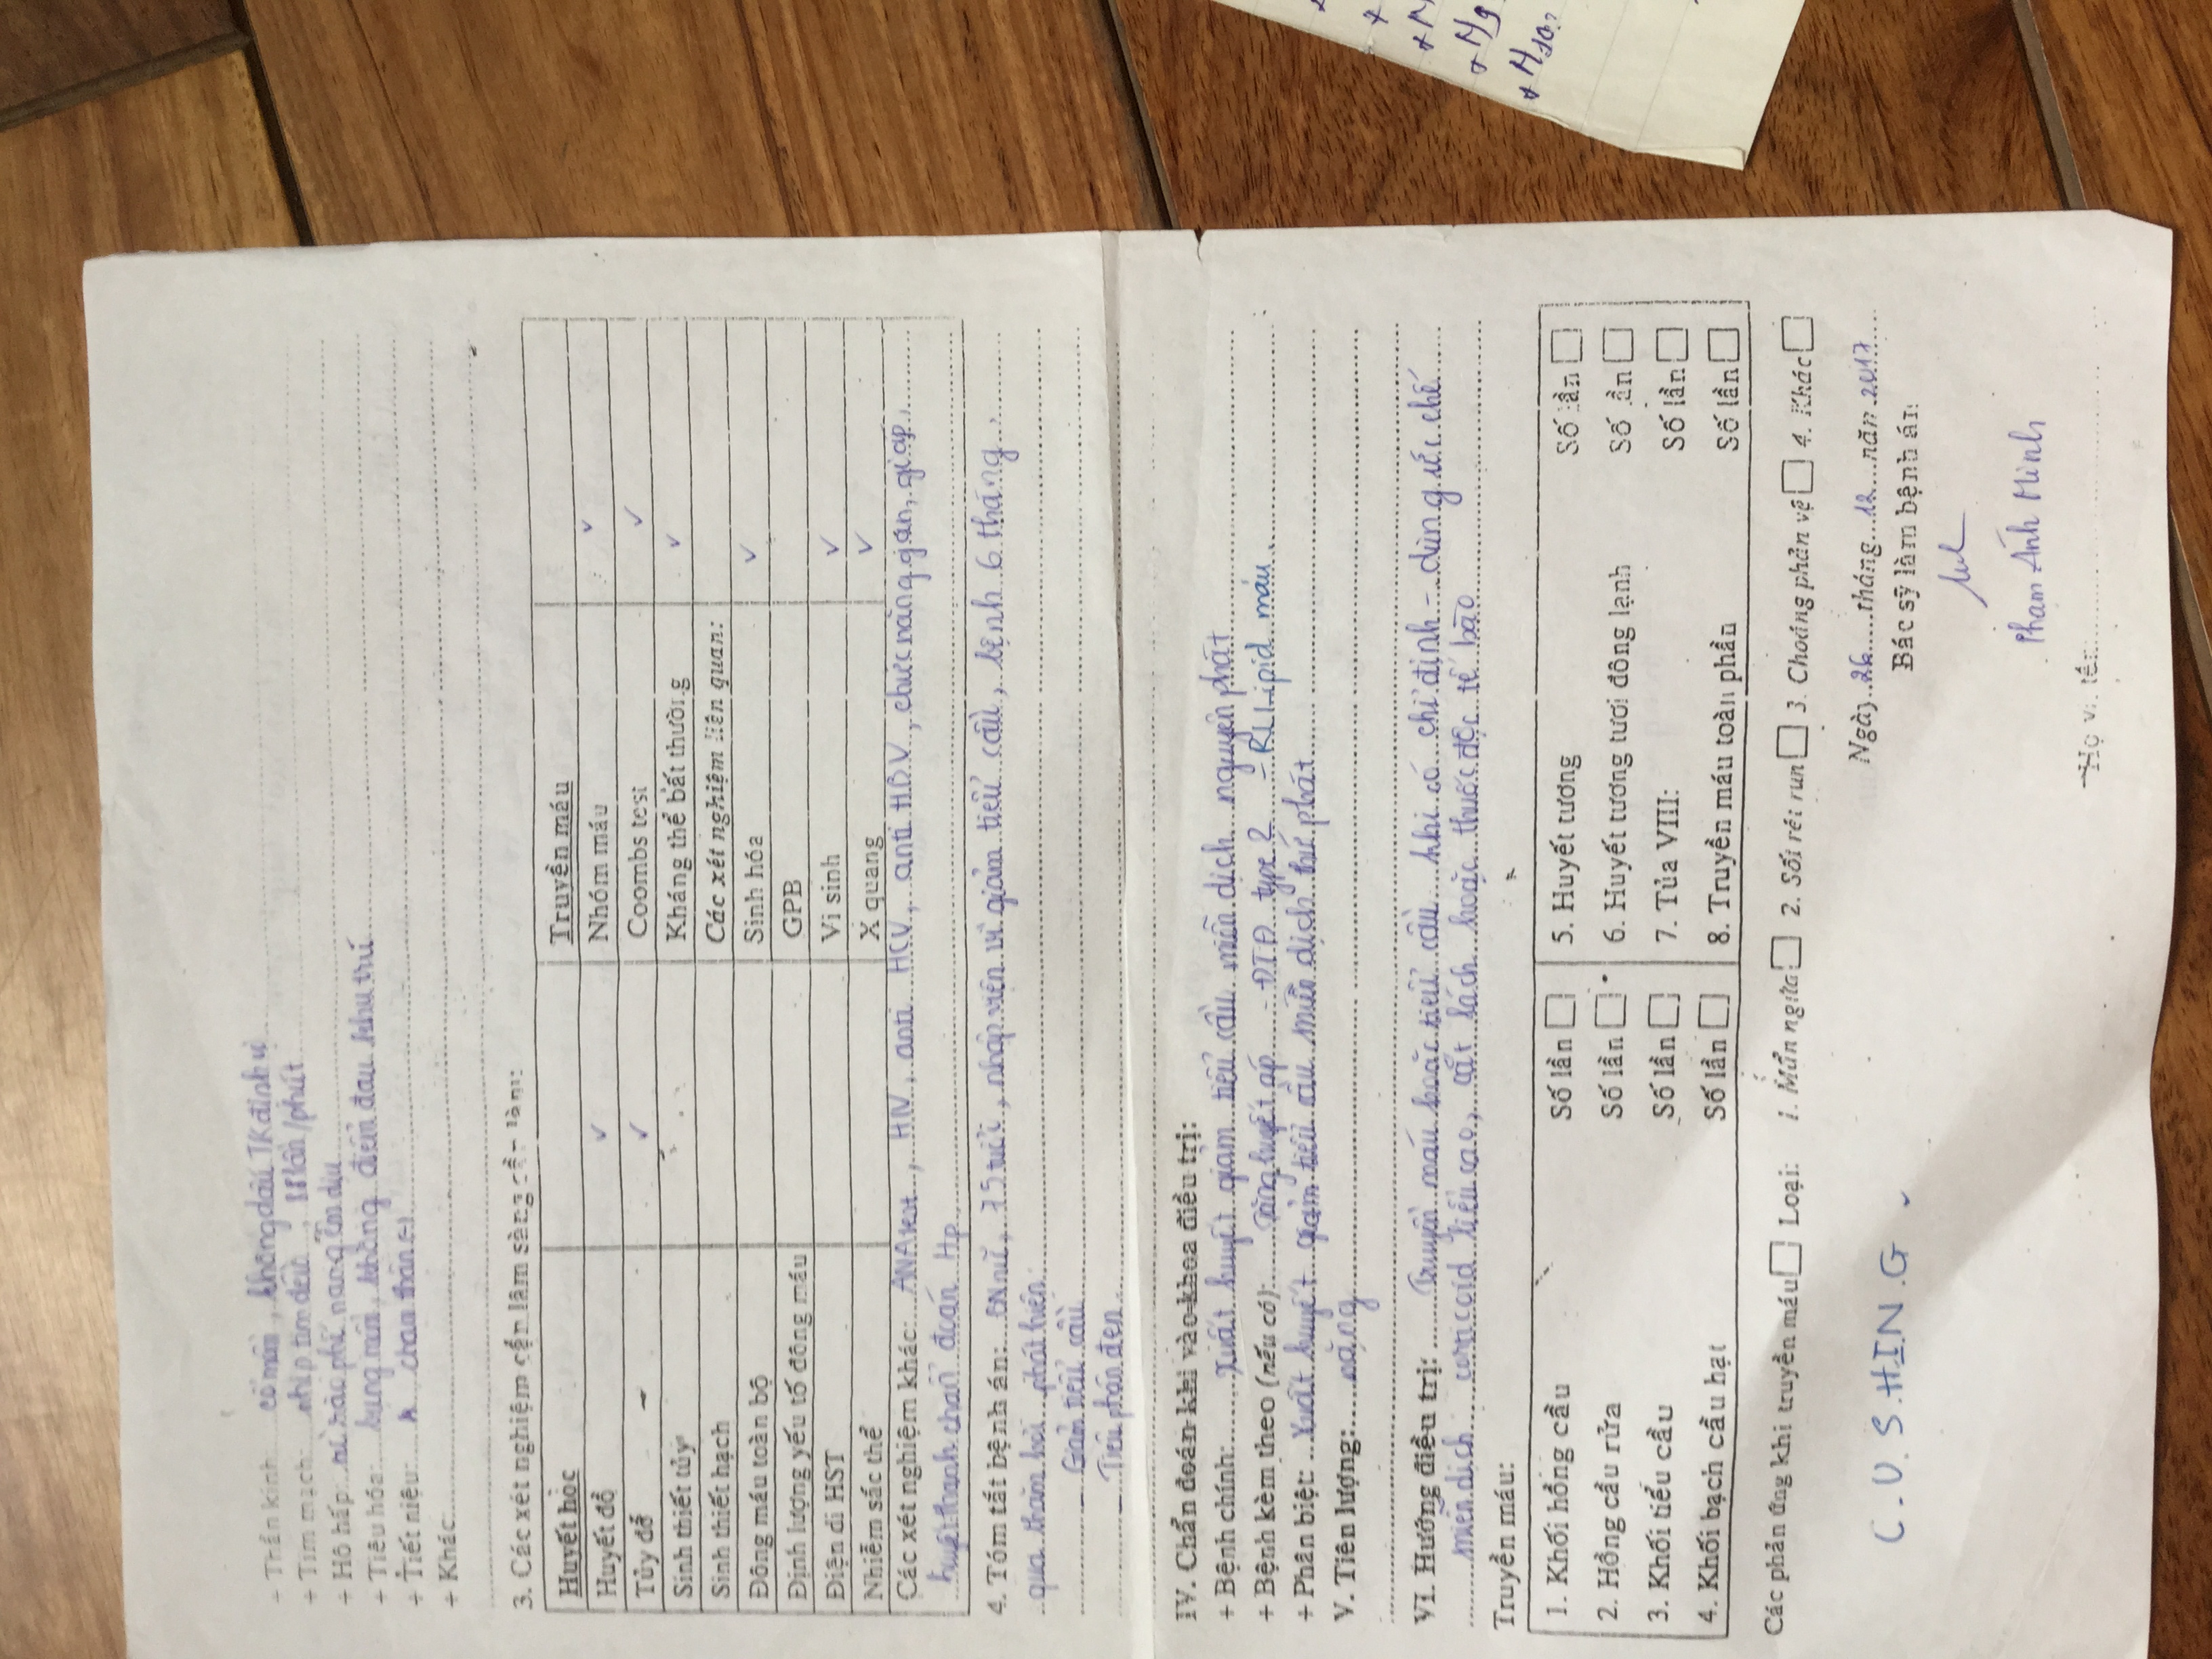 + Thần kinh: cổ mềm, không dấu TK định vị
+ Tim mạch: nhịp tim đều, 88 lần/phút
+ Hô hấp: rì rào phế nang êm dịu
+ Tiêu hóa: bụng mềm, không điểm đau khu trú
+ Tiết niệu: chạm thận (-)
+ Khác:
3. Các xét nghiệm cận lâm sàng cần làm:
Huyết học Truyền máu
Huyết đồ ✓ Nhóm máu ✓
Tủy đồ ✓ Coombs test ✓
Sinh thiết tủy Kháng thể bất thường ✓
Sinh thiết hạch Các xét nghiệm liên quan:
Đông máu toàn bộ Sinh hóa ✓
Định lượng yếu tố đông máu GPB
Điện di HST Vi sinh ✓
Nhiễm sắc thể X quang ✓
Các xét nghiệm khác: ANA test, HIV, anti HCV, anti HBV, chức năng gan, giáp,
huyết thanh chẩn đoán Hp.
4. Tóm tắt bệnh án: BN nữ, 75 tuổi, nhập viện vì giảm tiểu cầu, bệnh 6 tháng.
qua thăm hỏi phát hiện:
- Giảm tiểu cầu
- Tiêu phân đen.
IV. Chẩn đoán khi vào khoa điều trị:
+ Bệnh chính: Xuất huyết giảm tiểu cầu miễn dịch nguyên phát
+ Bệnh kèm theo (nếu có): Tăng huyết áp - ĐTĐ type 2 - RL Lipid máu.
+ Phân biệt: Xuất huyết giảm tiểu cầu miễn dịch thứ phát
V. Tiên lượng: nặng
VI. Hướng điều trị: Truyền máu hoặc tiểu cầu khi có chỉ định - dùng ức chế
miễn dịch corticoid liều cao, cắt lách hoặc thuốc độc tế bào
Truyền máu:
1. Khối hồng cầu Số lần 5. Huyết tương Số lần
2. Hồng cầu rửa Số lần 6. Huyết tương tươi đông lạnh Số lần
3. Khối tiểu cầu Số lần 7. Tủa VIII: Số lần
4. Khối bạch cầu hạt Số lần 8. Truyền máu toàn phần Số lần
Các phản ứng khi truyền máu Loại: 1. Mẩn ngứa 2. Sốt rét run 3. Choáng phản vệ 4. Khác
Ngày 26 tháng 12 năm 2017
C.U.S.H.I.N.G.
Bác sỹ làm bệnh án
Phạm Ánh Minh
Họ và tên: